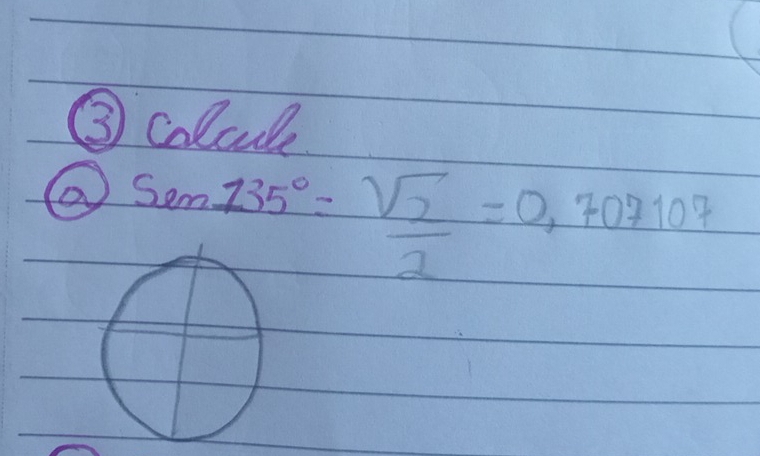 ③ Calcule
ⓐ Sen 135° = √2/2 = 0,707107